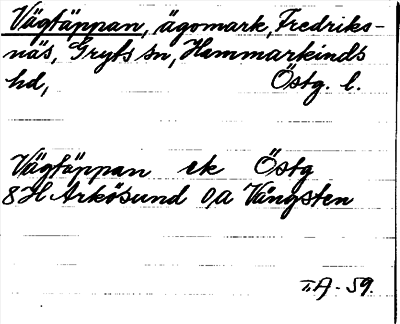 Vägtäppan, ägomark, Fredriks-
näs, Gryts sn, Hammarkinds
hd, Östg. l.
Vägtäppan ek Östg
8H Arkösund 0,a Vångsten
I.A - 59.